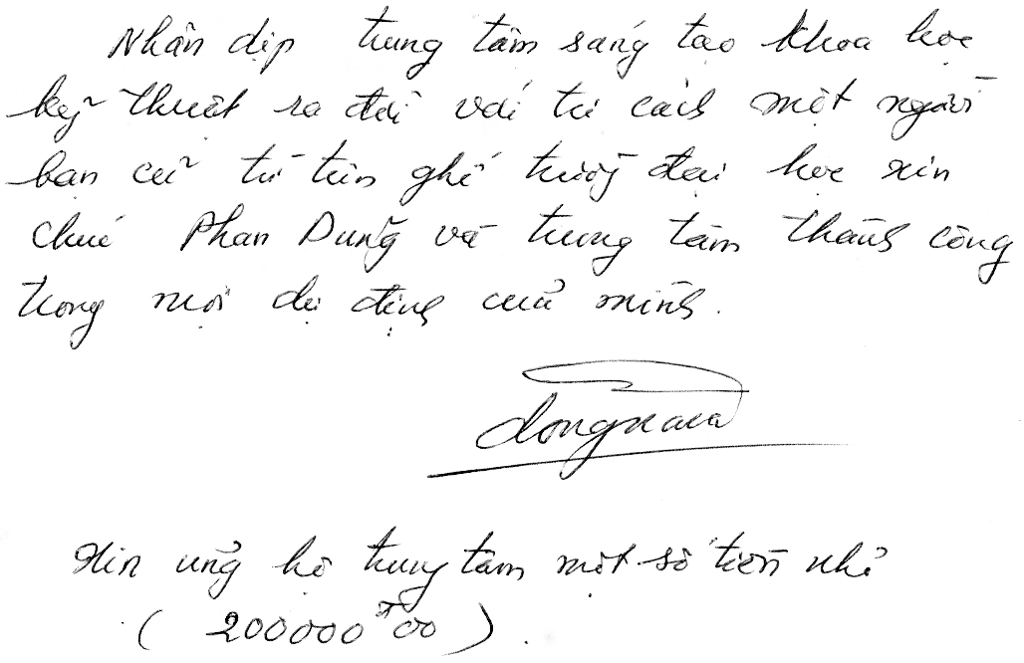 Nhân dịp trung tâm sáng tạo khoa học
kỹ thuật ra đời với tư cách một người
bạn cũ từ trên ghế trường đại học xin
chúc Phan Dũng và trung tâm thành công
trong mọi dự định của mình.
Xin ủng hộ trung tâm một số tiền nhỏ
( 200000đ00 ).